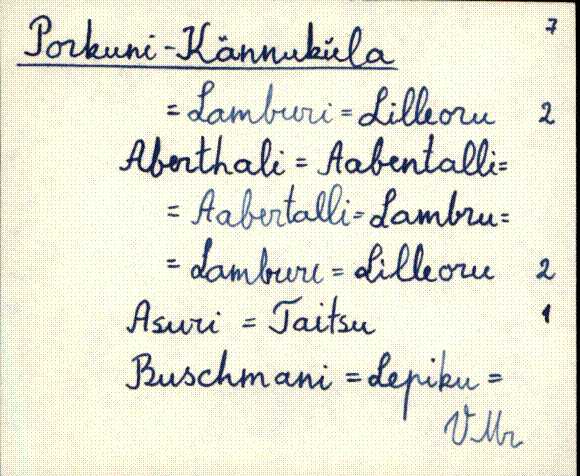 7
Porkuni-Kännuküla
= Lamburi = Lilleoru 2
Aberthali = Aabentalli=
= Aabertalli=Lambru=
= Lamburi = Lilleoru 2
Asuri = Taitsu 1
Buschmani = Lepiku =
VMr